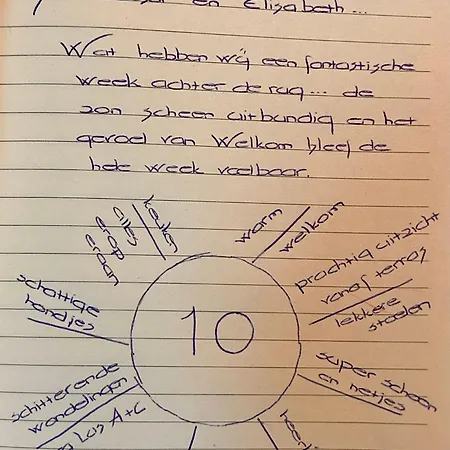 en Elisabeth...
Wat hebben wij een fantastische
week achter de rug... de
zon scheen uitbundig en het
gevoel van Welkom bleef de
hele week voelbaar.
keuken
alles
erop
eraan
warm
welkom
prachtig uitzicht
vanaf terras
lekkere
stoelen
schattige
hondjes
10
super schoon
en netjes
schitterende
wandelingen
Las A+C